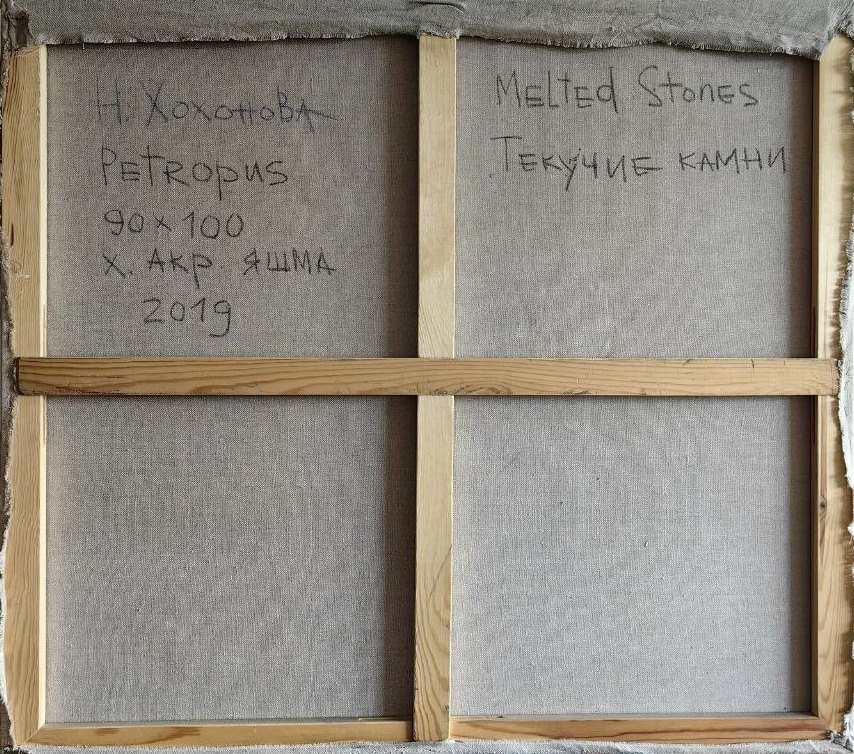 Н. Хохонова
Petropus
90 x 100
х. акр. яшма
2019
Melted Stones
Текучие камни